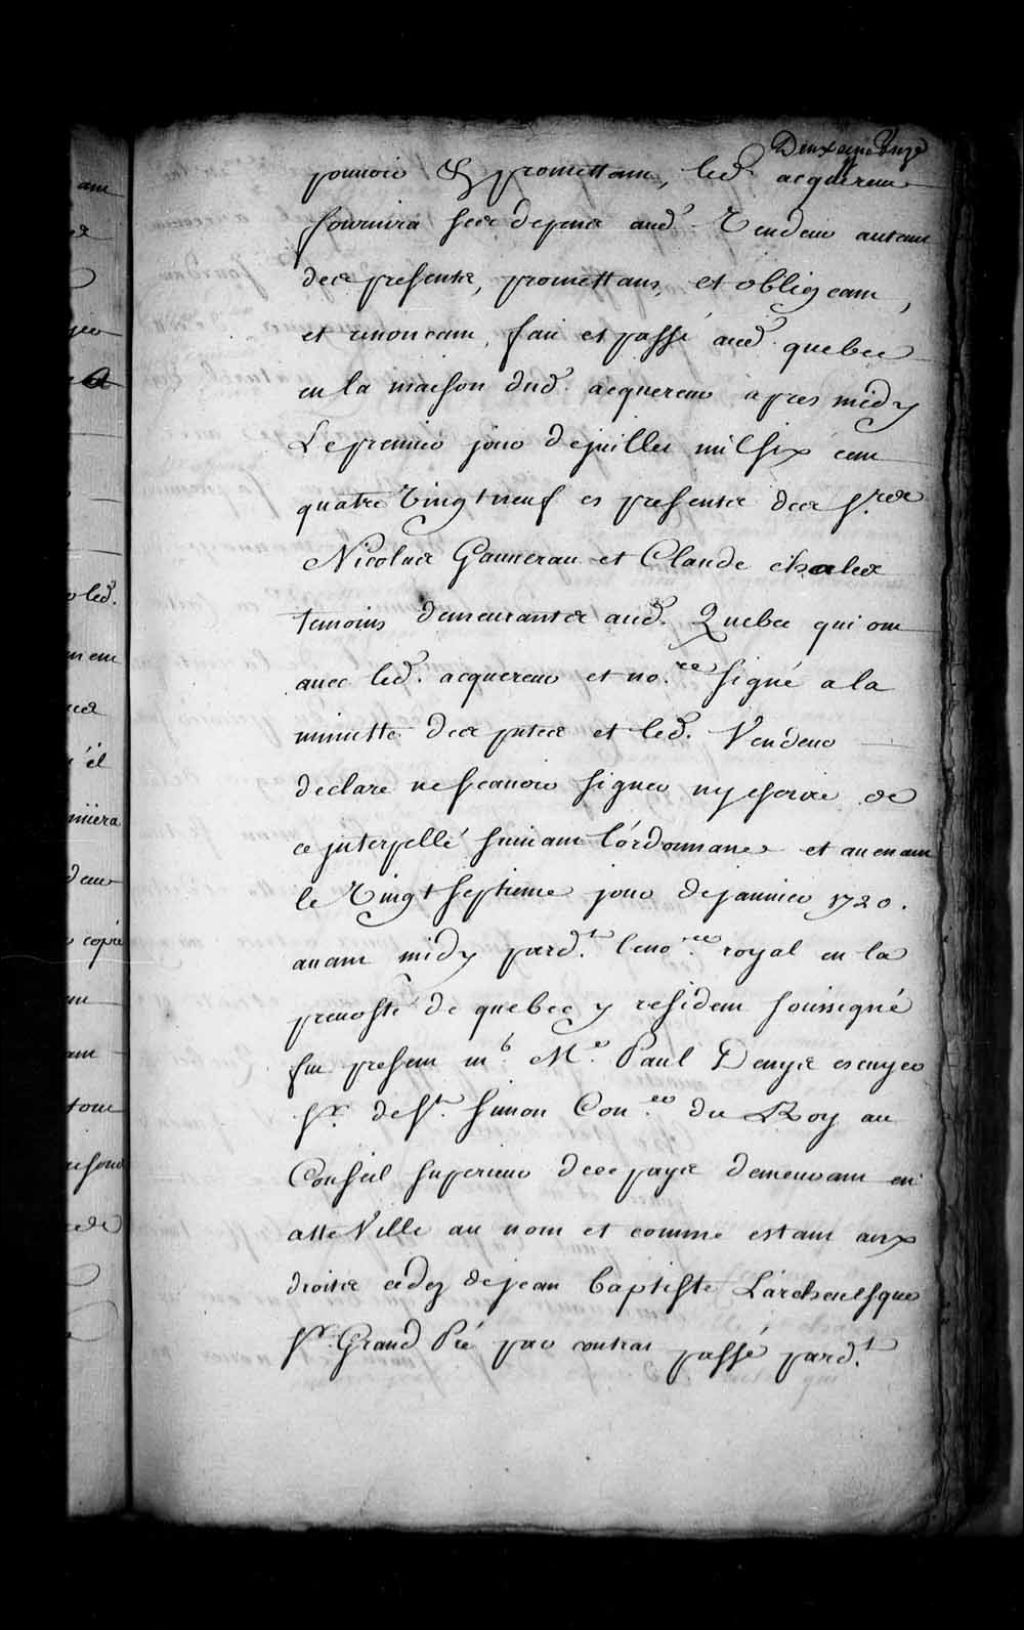 Deux cens Onze
pouvoir & promettant, led. acquereur
fournira ses depens aud. Vendeur autant
des presentes, promettans, et obligeant,
et renoncant, fait et passé aud. quebec
en la maison dud. acquereur apres midy
Le premier jour de juillet mil six cent
quatre Vingt neuf es presences des Srs
Nicolas Gauvreau et Claude chasles
temoins demeurants aud. Quebec qui ont
avec led. acquereur et nore. signé a la
minutte des ptes et led. Vendeur
declaré ne scavoir signer ny escrire de
ce interpellé suivant l'ordonnance et avenant
le Vingt septieme jour de janvier 1720.
avant midy pard.t le nore. royal en la
prevosté de quebec y resident soussigné
fut present Me. Paul Denys escuyer
Sr. de St. Simon Coner. du Roy au
Conseil superieur de ce pays demeurant en
cette Ville au nom et comme estant aux
droits cedez de jean baptiste Larchevesque
Sr. Grand Pré par contrat passé pard.t
am
led.
ment
el
niera
deur
copie
am
tout